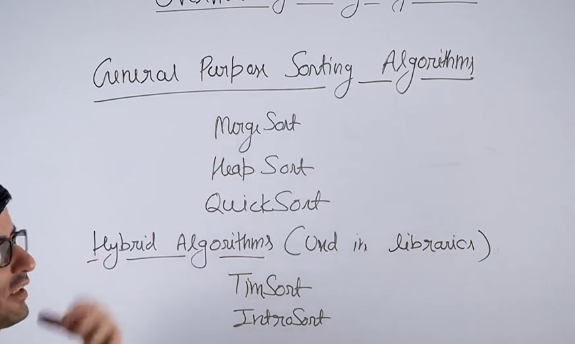 General Purpose Sorting Algorithms
MergeSort
Heap Sort
QuickSort
Hybrid Algorithms (Used in libraries)
TimSort
IntroSort